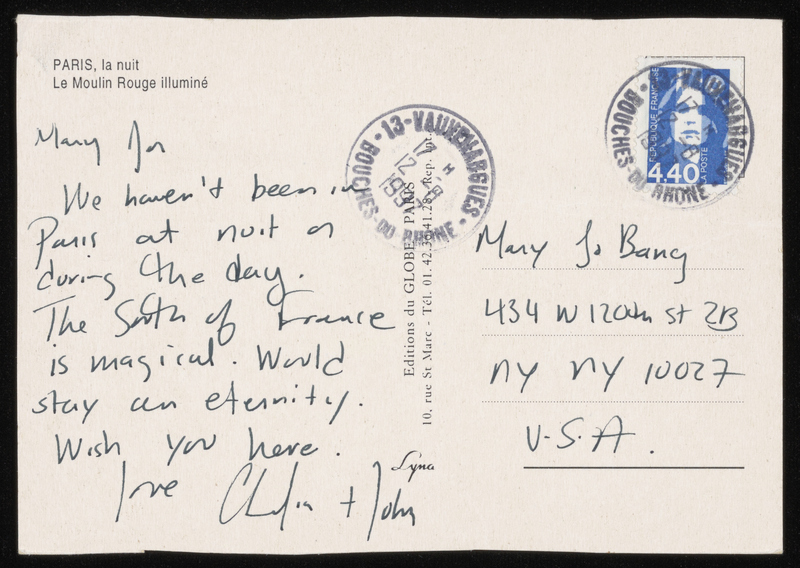 PARIS, la nuit
Le Moulin Rouge illuminé
Mary Jo
We haven't been in
Paris at nuit or
during the day.
The South of France
is magical. Would
stay an eternity.
Wish you here.
love + John
13-VAUVENARGUES
17 H
12-8
199
BOUCHES-DU-RHONE
Editions du GLOBE - PARIS
10, rue St Marc - Tél. 01.42.36.41.28 / Rep. Int.
Lyna
RÉPUBLIQUE FRANÇAISE
4.40
LA POSTE
13-VAUVENARGUES
17 H
12-8
199
BOUCHES-DU-RHONE
Mary Jo Bang
434 W 120th St 2B
NY NY 10027
U.S.A.